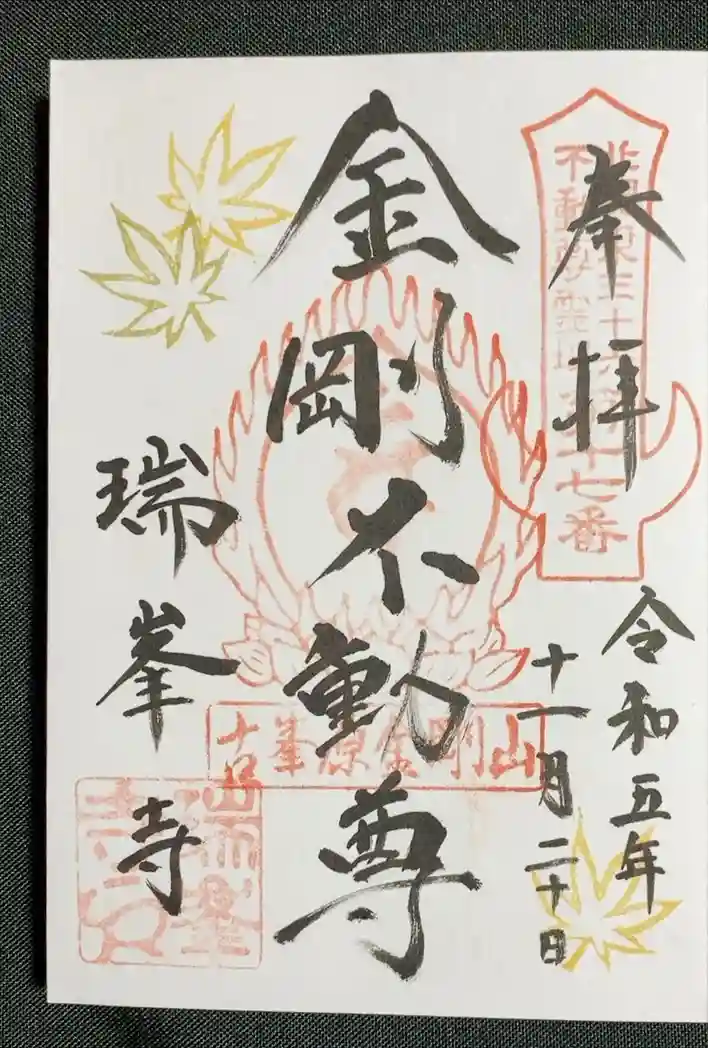 奉拝
令和五年
十一月二十日
金剛不動尊
瑞峯寺
北関東三十六
不動尊霊場第十七番